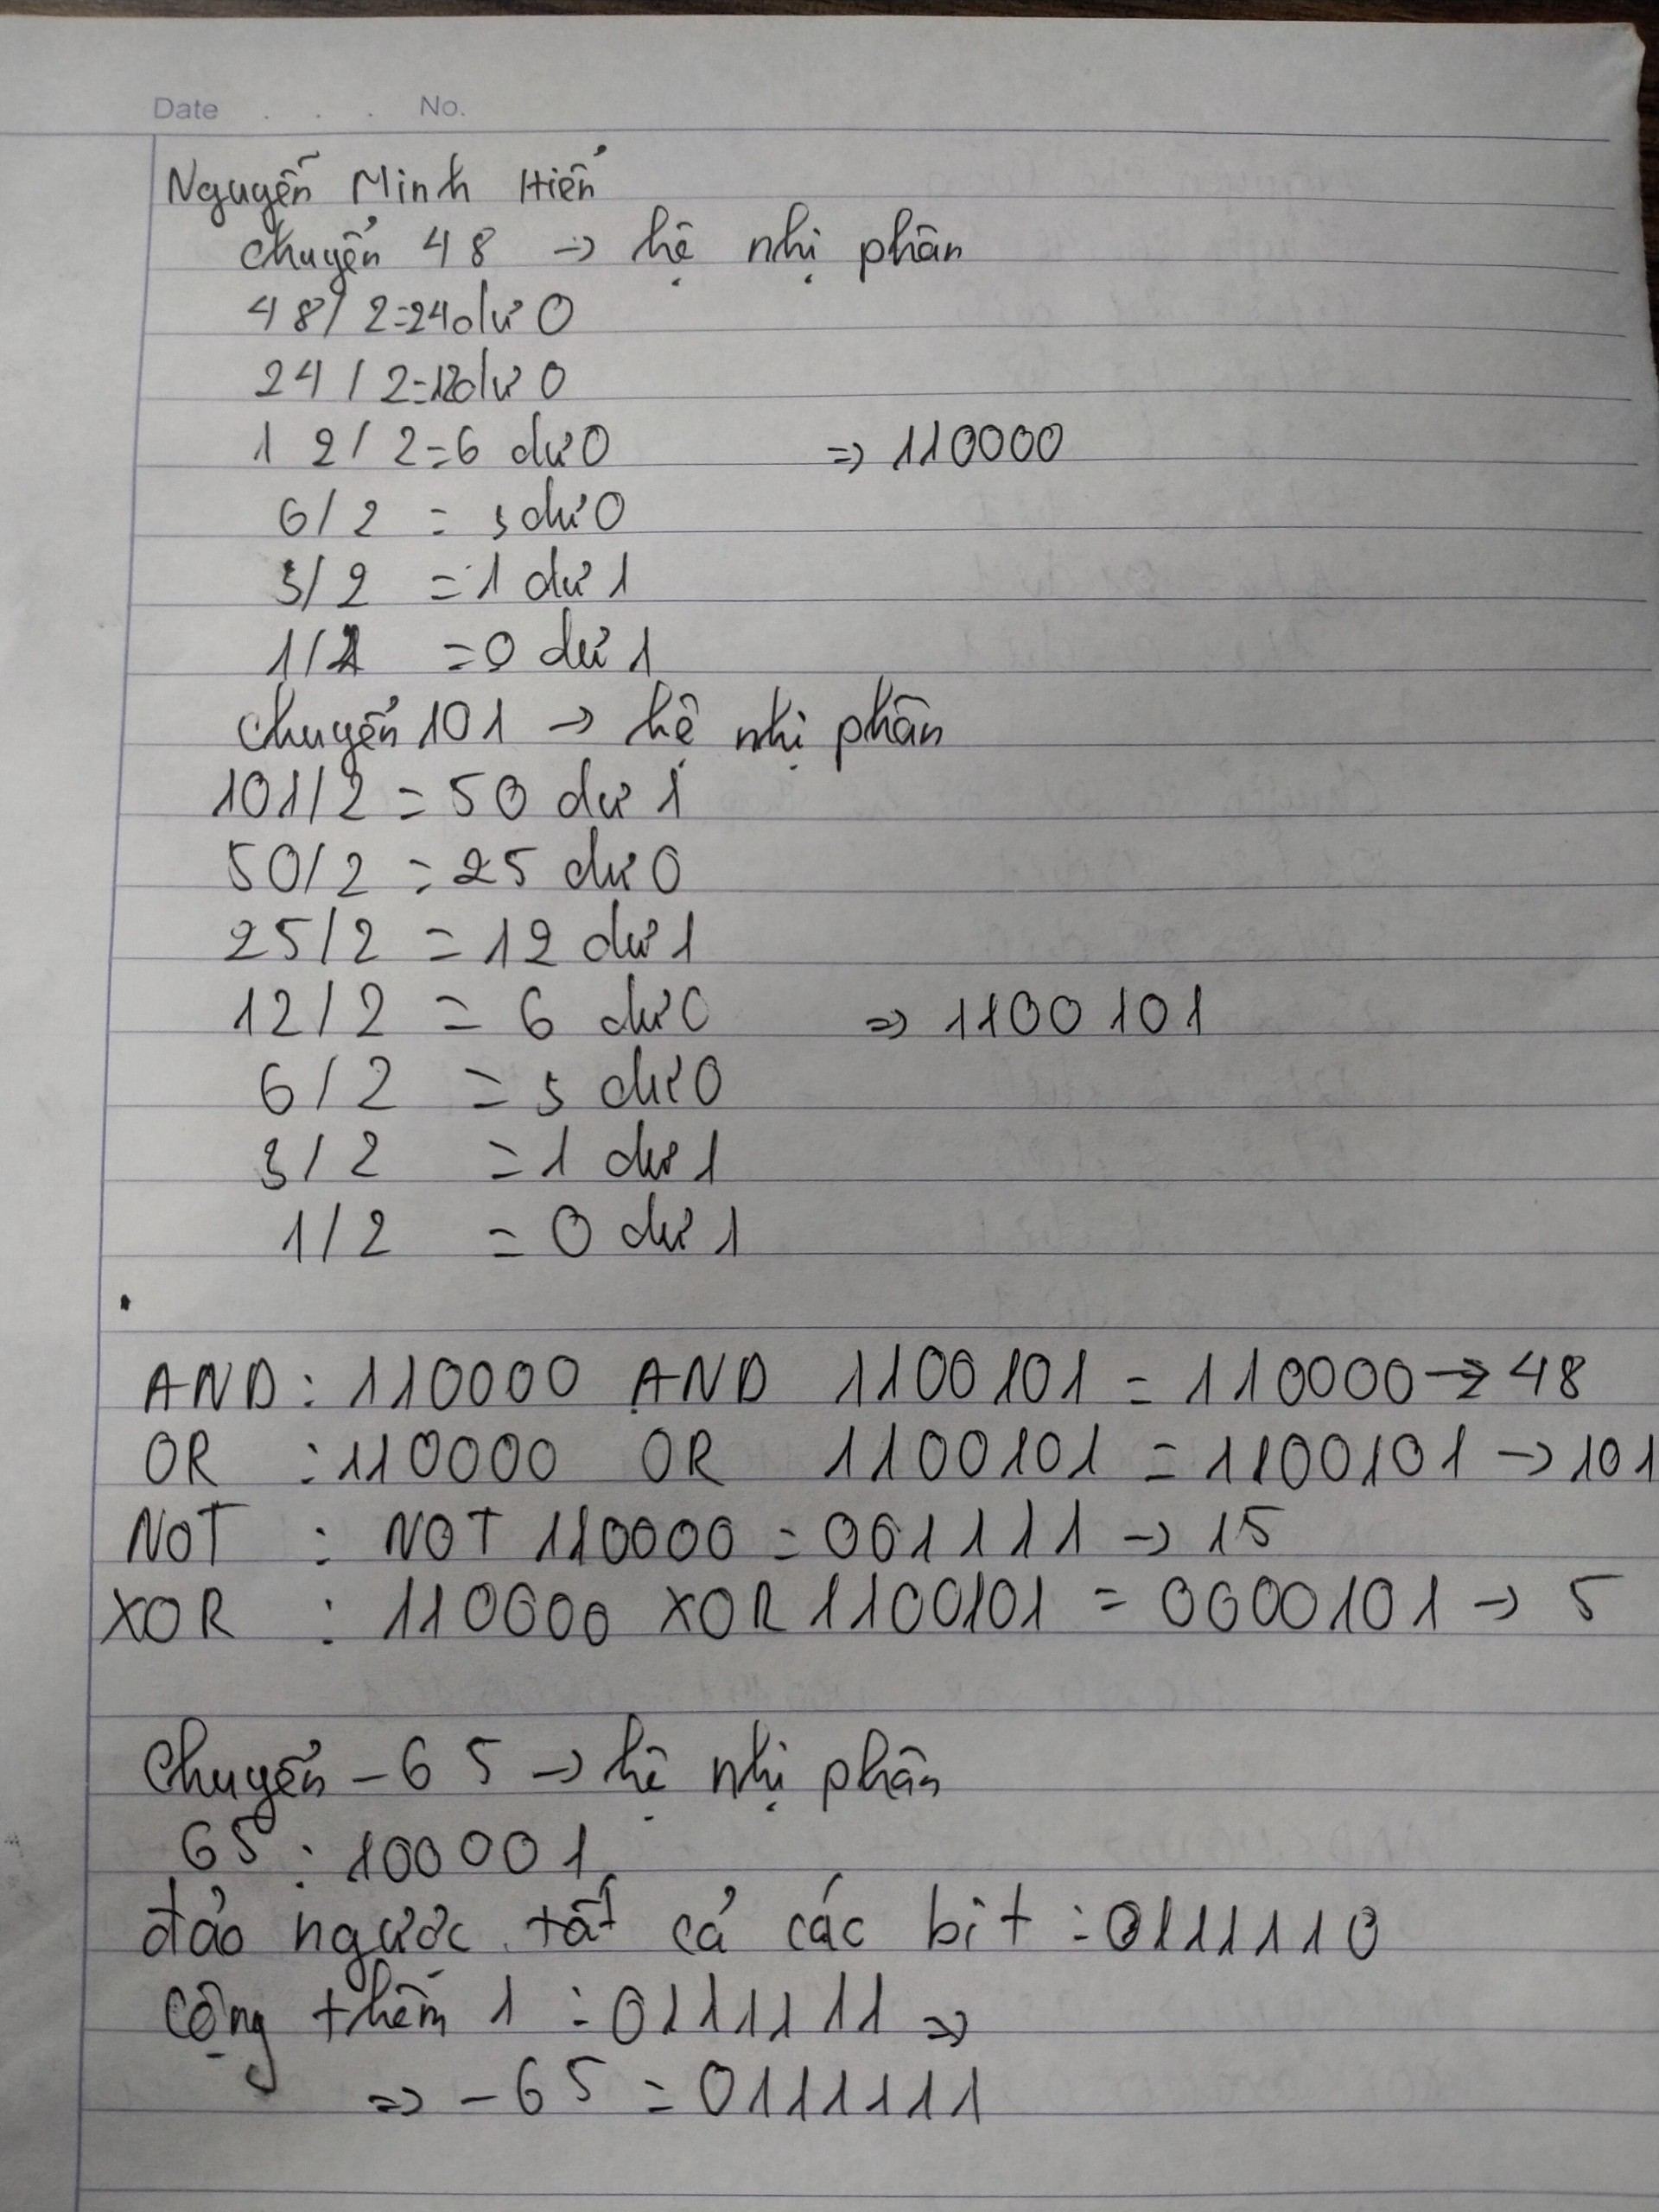 Date . . . No.
Nguyễn Minh Hiển
chuyển 48 → hệ nhị phân
48/2=24 dư 0
24/2=12 dư 0
12/2=6 dư 0 => 110000
6/2 = 3 dư 0
3/2 = 1 dư 1
1/2 = 0 dư 1
chuyển 101 → hệ nhị phân
101/2 = 50 dư 1
50/2 = 25 dư 0
25/2 = 12 dư 1
12/2 = 6 dư 0 => 1100101
6/2 = 3 dư 0
3/2 = 1 dư 1
1/2 = 0 dư 1
AND : 110000 AND 1100101 = 110000 → 48
OR : 110000 OR 1100101 = 1100101 → 101
NOT : NOT 110000 = 001111 → 15
XOR : 110000 XOR 1100101 = 0000101 → 5
Chuyển -65 → hệ nhị phân
65 : 100001
đảo ngược tất cả các bit : 0111110
Cộng thêm 1 : 0111111 =>
=> -65 = 0111111